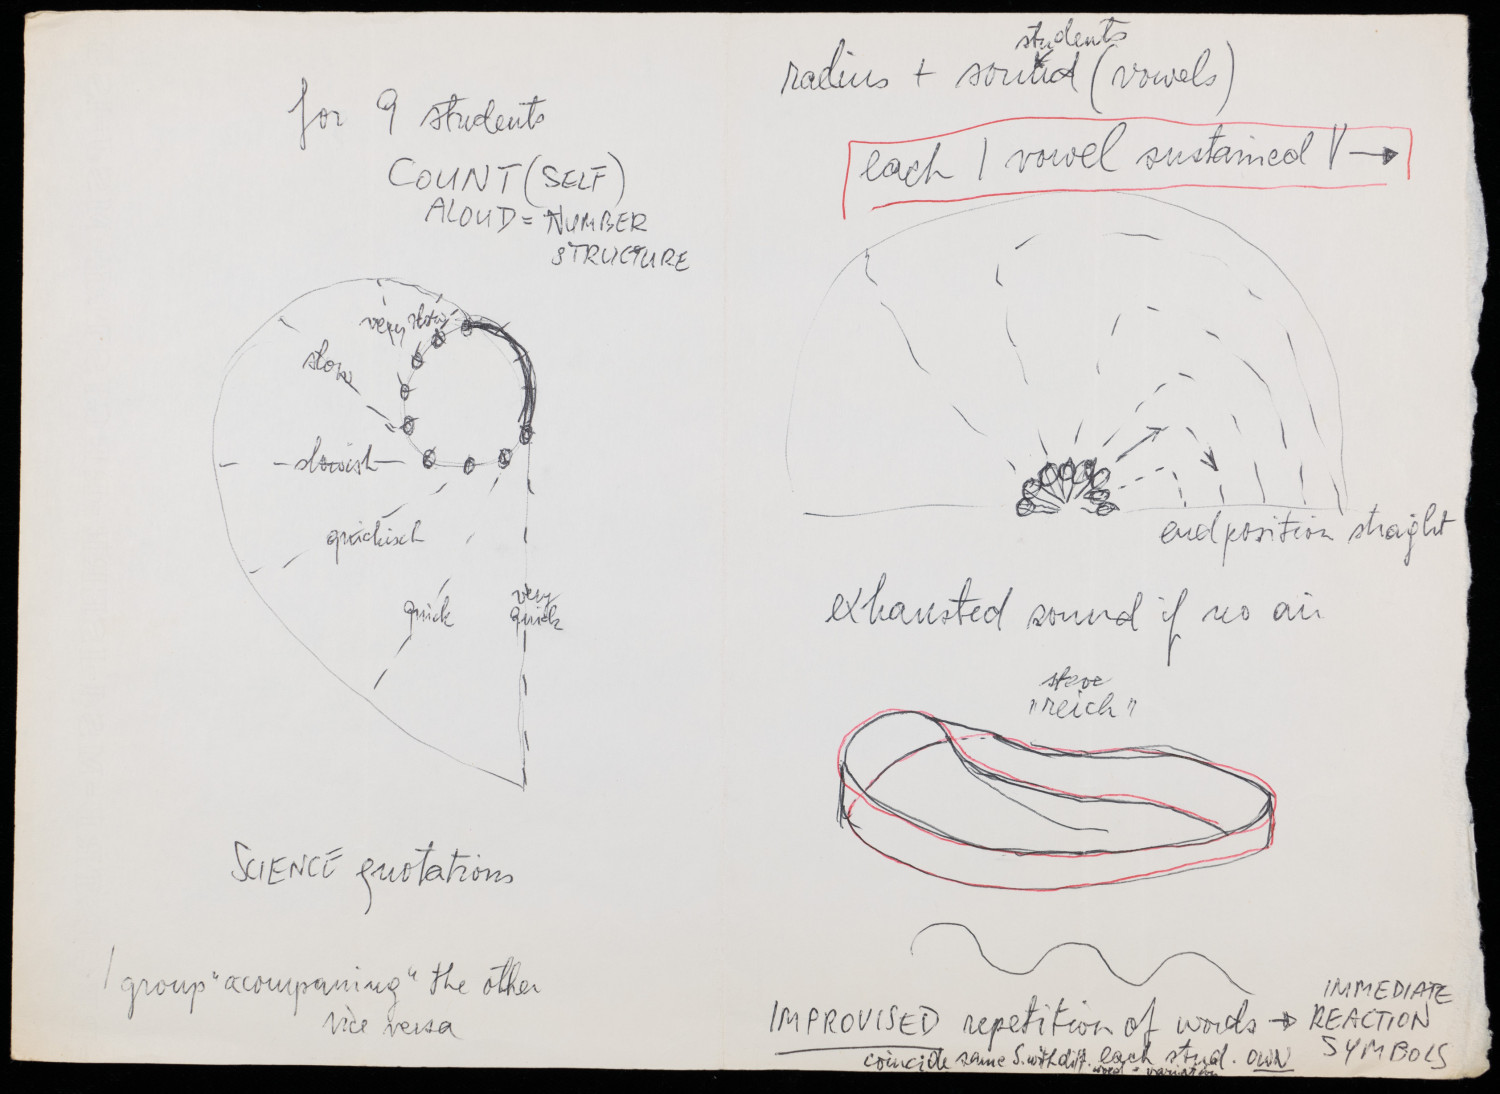 for 9 students
COUNT (SELF)
ALOUD = NUMBER
STRUCTURE
very slow
slow
slowish
quickisch
quick
very
quick
SCIENCE quotations
1 group "acompaning" the other
vice versa
students
radius + sound (vowels)
each 1 vowel sustained
endposition straight
exhausted sound if no air
steve
"reich"
IMPROVISED repetition of words → IMMEDIATE
REACTION
SYMBOLS
coincide same S. with diff. each stud. OWN
word + variation